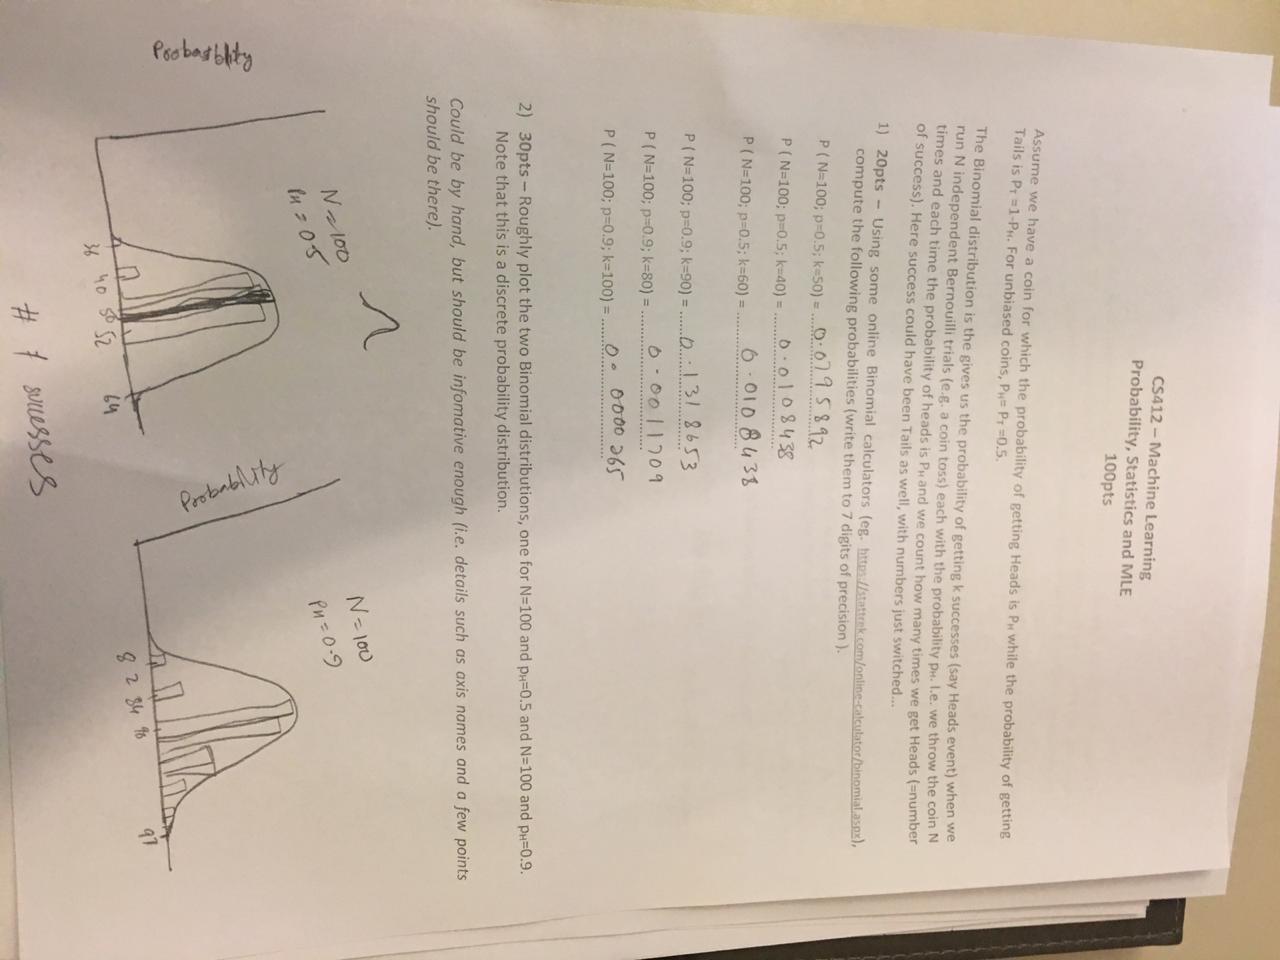 CS412 – Machine Learning
Probability, Statistics and MLE
100pts
Assume we have a coin for which the probability of getting Heads is PH while the probability of getting
Tails is PT =1-PH. For unbiased coins, PH= PT =0.5.
The Binomial distribution is the gives us the probability of getting k successes (say Heads event) when we
run N independent Bernouilli trials (e.g. a coin toss) each with the probability pH. I.e. we throw the coin N
times and each time the probability of heads is PH and we count how many times we get Heads (=number
of success). Here success could have been Tails as well, with numbers just switched...
1) 20pts – Using some online Binomial calculators (eg. https://stattrek.com/online-calculator/binomial.aspx),
compute the following probabilities (write them to 7 digits of precision ).
P ( N=100; p=0.5; k=50) = 0.0795892
P ( N=100; p=0.5; k=40) = 0.0108438
P ( N=100; p=0.5; k=60) = 0.0108438
P ( N=100; p=0.9; k=90) = 0.1318653
P ( N=100; p=0.9; k=80) = 0.0011709
P ( N=100; p=0.9; k=100) = 0.0000265
2) 30pts – Roughly plot the two Binomial distributions, one for N=100 and pH=0.5 and N=100 and pH=0.9.
Note that this is a discrete probability distribution.
Could be by hand, but should be infomative enough (i.e. details such as axis names and a few points
should be there).
N=100
PH = 0.5
Probability
36 40 50 52 64
N=100
PH=0.9
Probability
82 84 90 97
# of successes